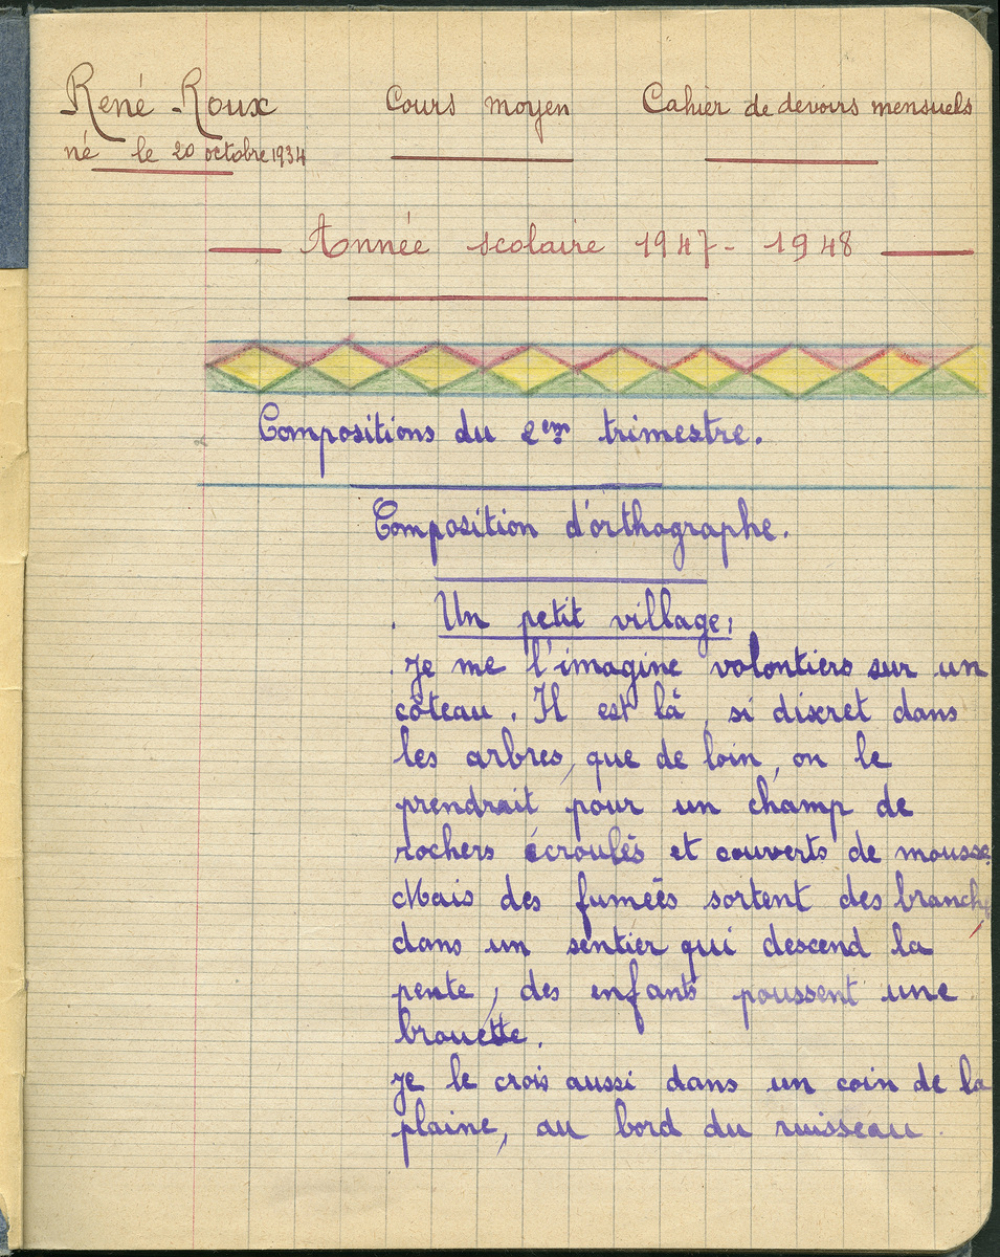 René Roux
né le 20 octobre 1934
Cours moyen
Cahier de devoirs mensuels
Année scolaire 1947-1948
Compositions du 2em trimestre.
Composition d'orthographe.
Un petit village:
Je me l'imagine volontiers sur un
côteau. Il est là, si discret dans
les arbres, que de loin, on le
prendrait pour un champ de
rochers écroulés et couverts de mousse
Mais des fumées sortent des branche
dans un sentier qui descend la
pente, des enfants poussent une
brouette.
Je le crois aussi dans un coin de la
plaine, au bord du ruisseau.